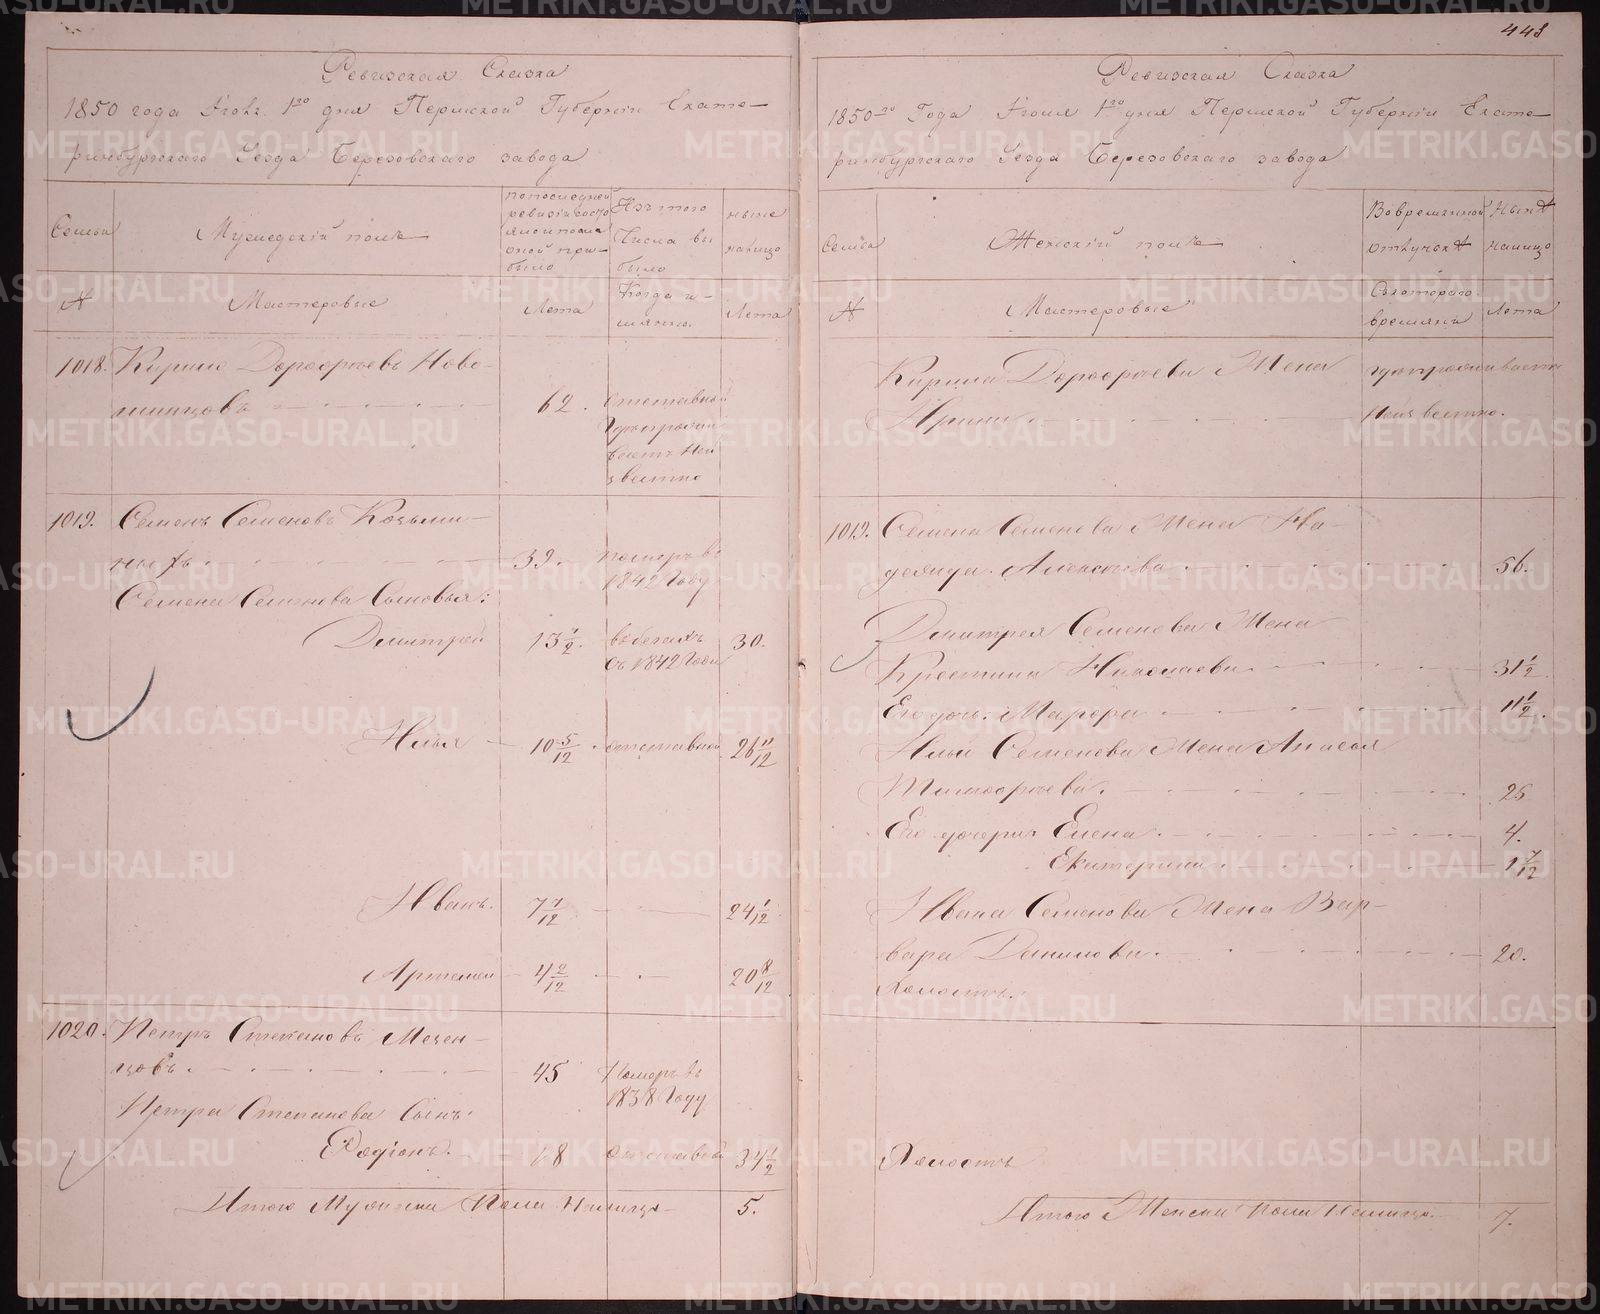 443
Ревизская Сказка
1850 года Июля 1го дня Пермской Губернии Екате-
ринбургского Уезда Березовского завода
Семьи
Мужеский полъ
по последней
ревизии состо
яло и после
оной при-
было
Изъ того
Числа вы
было
ныне
налицо
№
Мастеровые
Лета
Когда и-
Лета
1018. Кирилъ Дорофеевъ Ново-
62. отставной
где прожи
ваетъ Неи
звестно
1019. Семенъ Семеновъ Козьми-
ныхъ 39. померъ въ
1842 Году
Семена Семенова Сыновья:
Дмитрей 13 1/2. въ бегахъ 30.
съ 1842 Года
Илья 10 5/12. отставной 26 11/12
Иванъ. 7 7/12 24 1/12
Артемей 4 2/12 20 8/12
1020. Петръ Степановъ Мезен-
цовъ. 45 Померъ въ
1838 Году
Петра Степанова Сынъ:
Родіонъ. 18 отставной 34 1/2
Итого Мужеска Пола Налицо 5.
Ревизская Сказка
1850го Года Июля 1го дня Пермской Губернии Екате-
ринбургского Уезда Березовского завода
Семьи
Женскій полъ
Во временной
отлучке
Ныне
налицо
№
Мастеровые
Съ которого
времяни
Лета
Кирила Дорофеева Жена где проживаетъ
Ирина Неизвестно.
1019. Семена Семенова Жена На-
дежда Алексеева 56.
Дмитрея Семенова Жена
Крестина Николаева 31 1/2
Его дочь Марфа 11 1/2.
Ильи Семенова Жена
Тимофеева. 25
Его дочери: Елена. 4.
Екатерина. 1 7/12
Ивана Семенова Жена Вар-
вара Данилова. 20.
Холостъ.
Холостъ
Итого Женска Пола Налицо 7.
METRIKI.GASO-URAL.RU